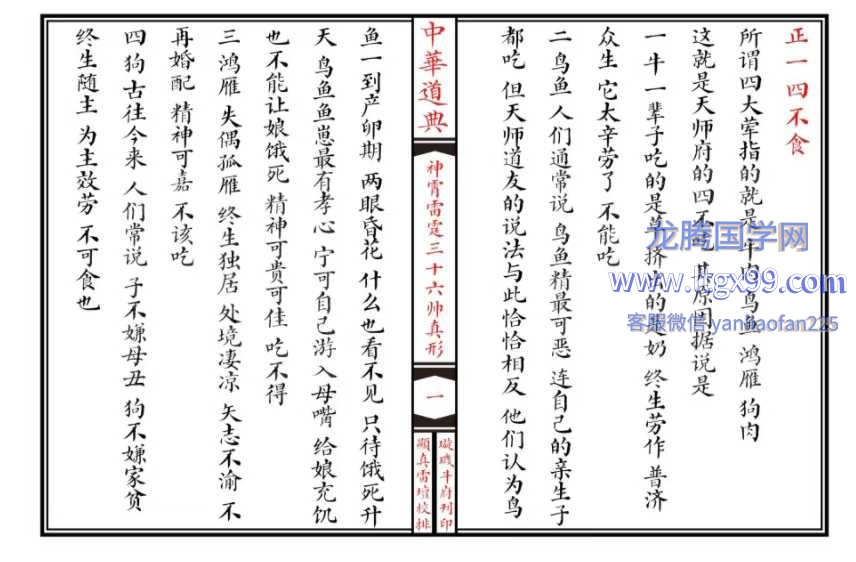 正一四不食
所谓四大荤指的就是 牛肉 鸟鱼 鸿雁 狗肉
这就是天师府的四不吃 其原因据说是
一 牛一辈子吃的是草 挤出的是奶 终生劳作 普济
众生 它太辛劳了 不能吃
二 鸟鱼 人们通常说 鸟鱼精最可恶 连自己的亲生子
都吃 但天师道友的说法与此恰恰相反 他们认为鸟
中華道典
神霄雷霆三十六帅真形
一
璇璣斗府刊印
顯真雷壇校排
鱼一到产卵期 两眼昏花 什么也看不见 只待饿死升
天 鸟鱼鱼崽最有孝心 宁可自己游入母嘴 给娘充饥
也不能让娘饿死 精神可贵可佳 吃不得
三 鸿雁 失偶孤雁 终生独居 处境凄凉 矢志不渝 不
再婚配 精神可嘉 不该吃
四 狗古往今来 人们常说 子不嫌母丑 狗不嫌家贫
终生随主 为主效劳 不可食也
龙腾国学网
www.ltgx99.com
客服微信 yanhaofan225